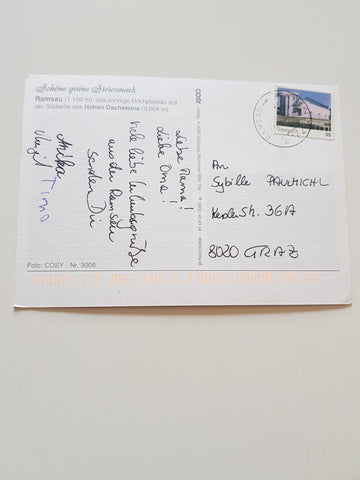 Schöne grüne Steiermark
Ramsau (1.150 m), das sonnige Hochplateau auf
der Südseite des Hohen Dachsteins (3.004 m).
Liebe Mama!
Liebe Oma!
Viele liebe Urlaubsgrüße
aus der Ramsau
senden Dir
Timo
Foto: COSY - Nr. 3008
COSY
www.cosy.at
RAMSAU
Österreich
55
An
Sybille PAUMICHL
36A
8020 GRAZ